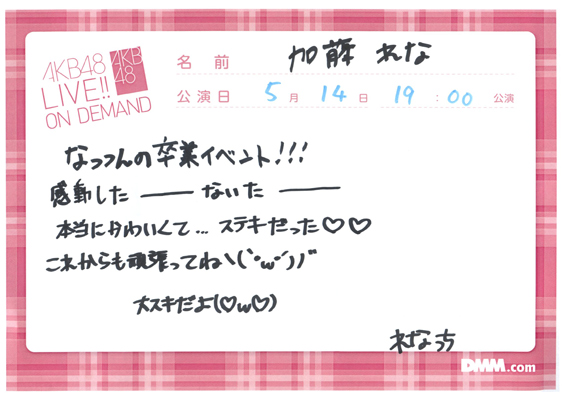 AKB48
LIVE!!
ON DEMAND
AKB
48
名前 加藤 れな
公演日 5月 14日 19:00 公演
なっつんの卒業イベント!!!
感動した ―― ないた ――
本当にかわいくて… ステキだった♡♡
これからも頑張ってねヽ(`・ω・´)ノ
大スキだよ(♡ω♡)
れなっち
DMM.com